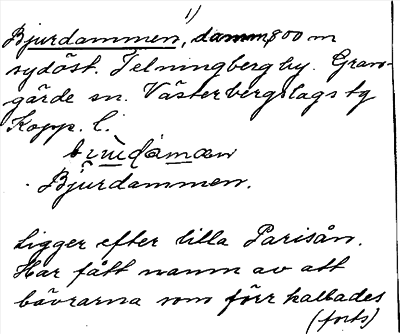 1)
Bjurdammen, damm, 800 m
sydöst. Telningberg by. Gran-
gärde sn. Västerbergslags tg
Kopp. l.
Bjurdammen.
Ligger efter lilla Parisån.
Har fått namn av att
bävrarna som förr kallades
(forts)